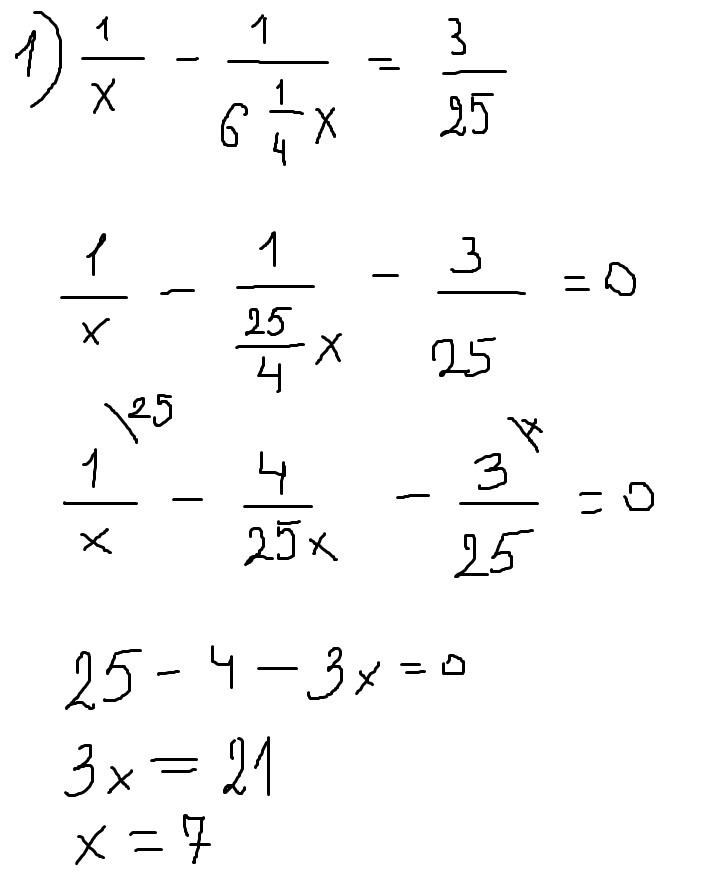 1) 1/x - 1/(6 1/4 x) = 3/25
1/x - 1/(25/4 x) - 3/25 = 0
1\25/x - 4/25x - 3\x/25 = 0
25 - 4 - 3x = 0
3x = 21
x = 7